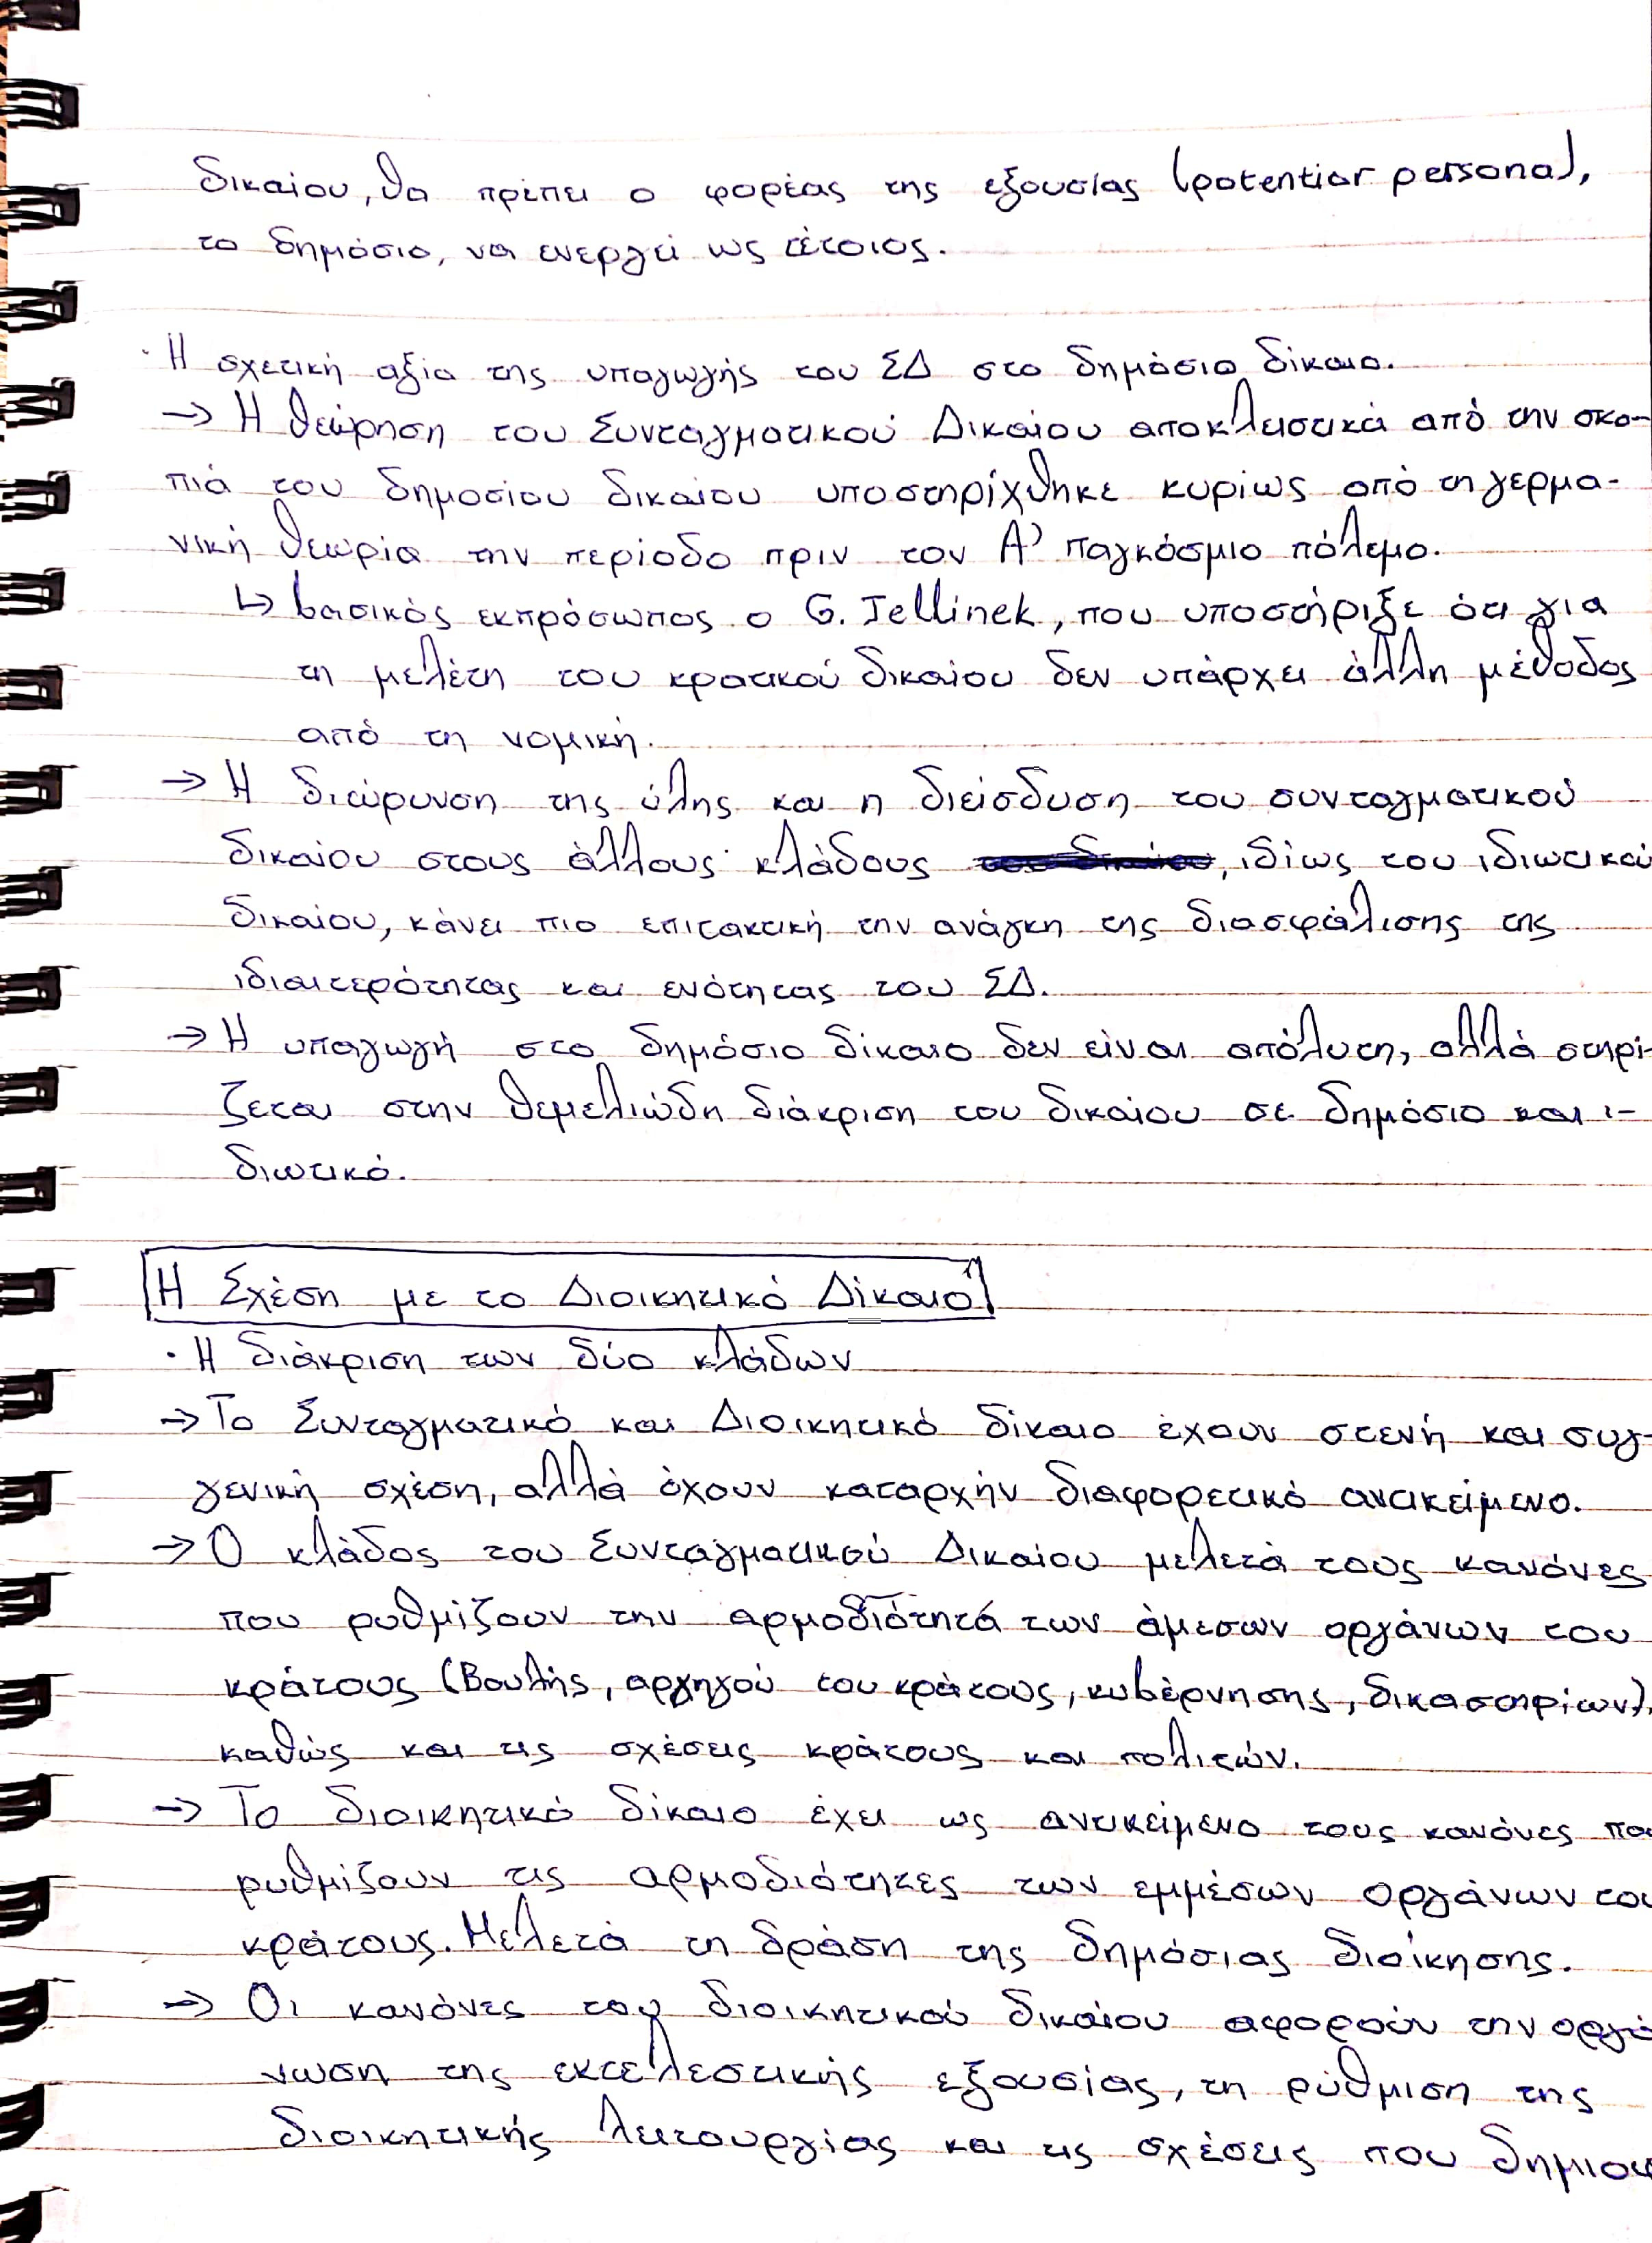 δικαίου, θα πρέπει ο φορέας της εξουσίας (potentior persona),
το δημόσιο, να ενεργεί ως τέτοιος.
· Η σχετική αξία της υπαγωγής του ΣΔ στο δημόσιο δίκαιο.
→ Η θεώρηση του Συνταγματικού Δικαίου αποκλειστικά από την σκο-
πιά του δημοσίου δικαίου υποστηρίχθηκε κυρίως από τη γερμα-
νική θεωρία την περίοδο πριν τον Α' παγκόσμιο πόλεμο.
↳ βασικός εκπρόσωπος ο G. Jellinek, που υποστήριξε ότι για
τη μελέτη του κρατικού δικαίου δεν υπάρχει άλλη μέθοδος
από τη νομική.
→ Η διεύρυνση της ύλης και η διείσδυση του συνταγματικού
δικαίου στους άλλους κλάδους, ιδίως του ιδιωτικού
δικαίου, κάνει πιο επιτακτική την ανάγκη της διασφάλισης της
ιδιαιτερότητας και ενότητας του ΣΔ.
→ Η υπαγωγή στο δημόσιο δίκαιο δεν είναι απόλυτη, αλλά στηρί-
ζεται στην θεμελιώδη διάκριση του δικαίου σε δημόσιο και ι-
διωτικό.
Η Σχέση με το Διοικητικό Δίκαιο
· Η διάκριση των δύο κλάδων
→ Το Συνταγματικό και Διοικητικό δίκαιο έχουν στενή και συγ-
γενική σχέση, αλλά έχουν καταρχήν διαφορετικό αντικείμενο.
→ Ο κλάδος του Συνταγματικού Δικαίου μελετά τους κανόνες
που ρυθμίζουν την αρμοδιότητά των άμεσων οργάνων του
κράτους (Βουλής, αρχηγού του κράτους, κυβέρνησης, δικαστηρίων),
καθώς και τις σχέσεις κράτους και πολιτών.
→ Το διοικητικό δίκαιο έχει ως αντικείμενο τους κανόνες που
ρυθμίζουν τις αρμοδιότητες των εμμέσων οργάνων του
κράτους. Μελετά τη δράση της δημόσιας διοίκησης.
→ Οι κανόνες του διοικητικού δικαίου αφορούν την οργά
νωση της εκτελεστικής εξουσίας, τη ρύθμιση της
διοικητικής λειτουργίας και τις σχέσεις που δημιου